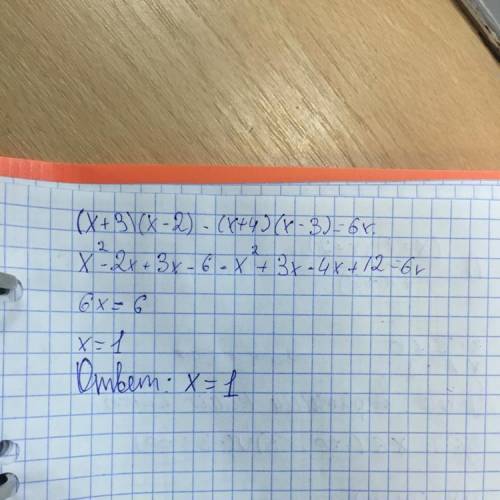 (x+3)(x-2) - (x+4)(x-3)=6x
x²-2x+3x-6-x²+3x-4x+12=6x
6x=6
x=1
Ответ: x=1